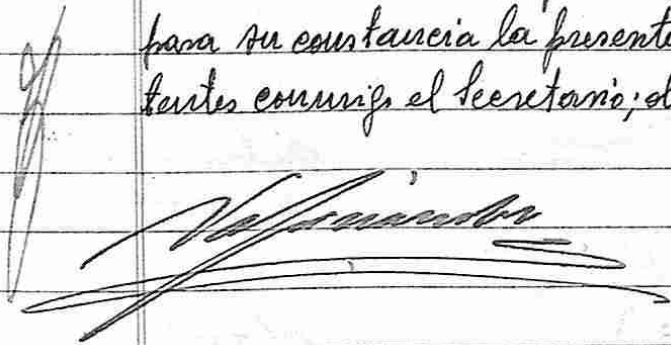 para su constancia la presente
tentes conmigo el Secretario; d